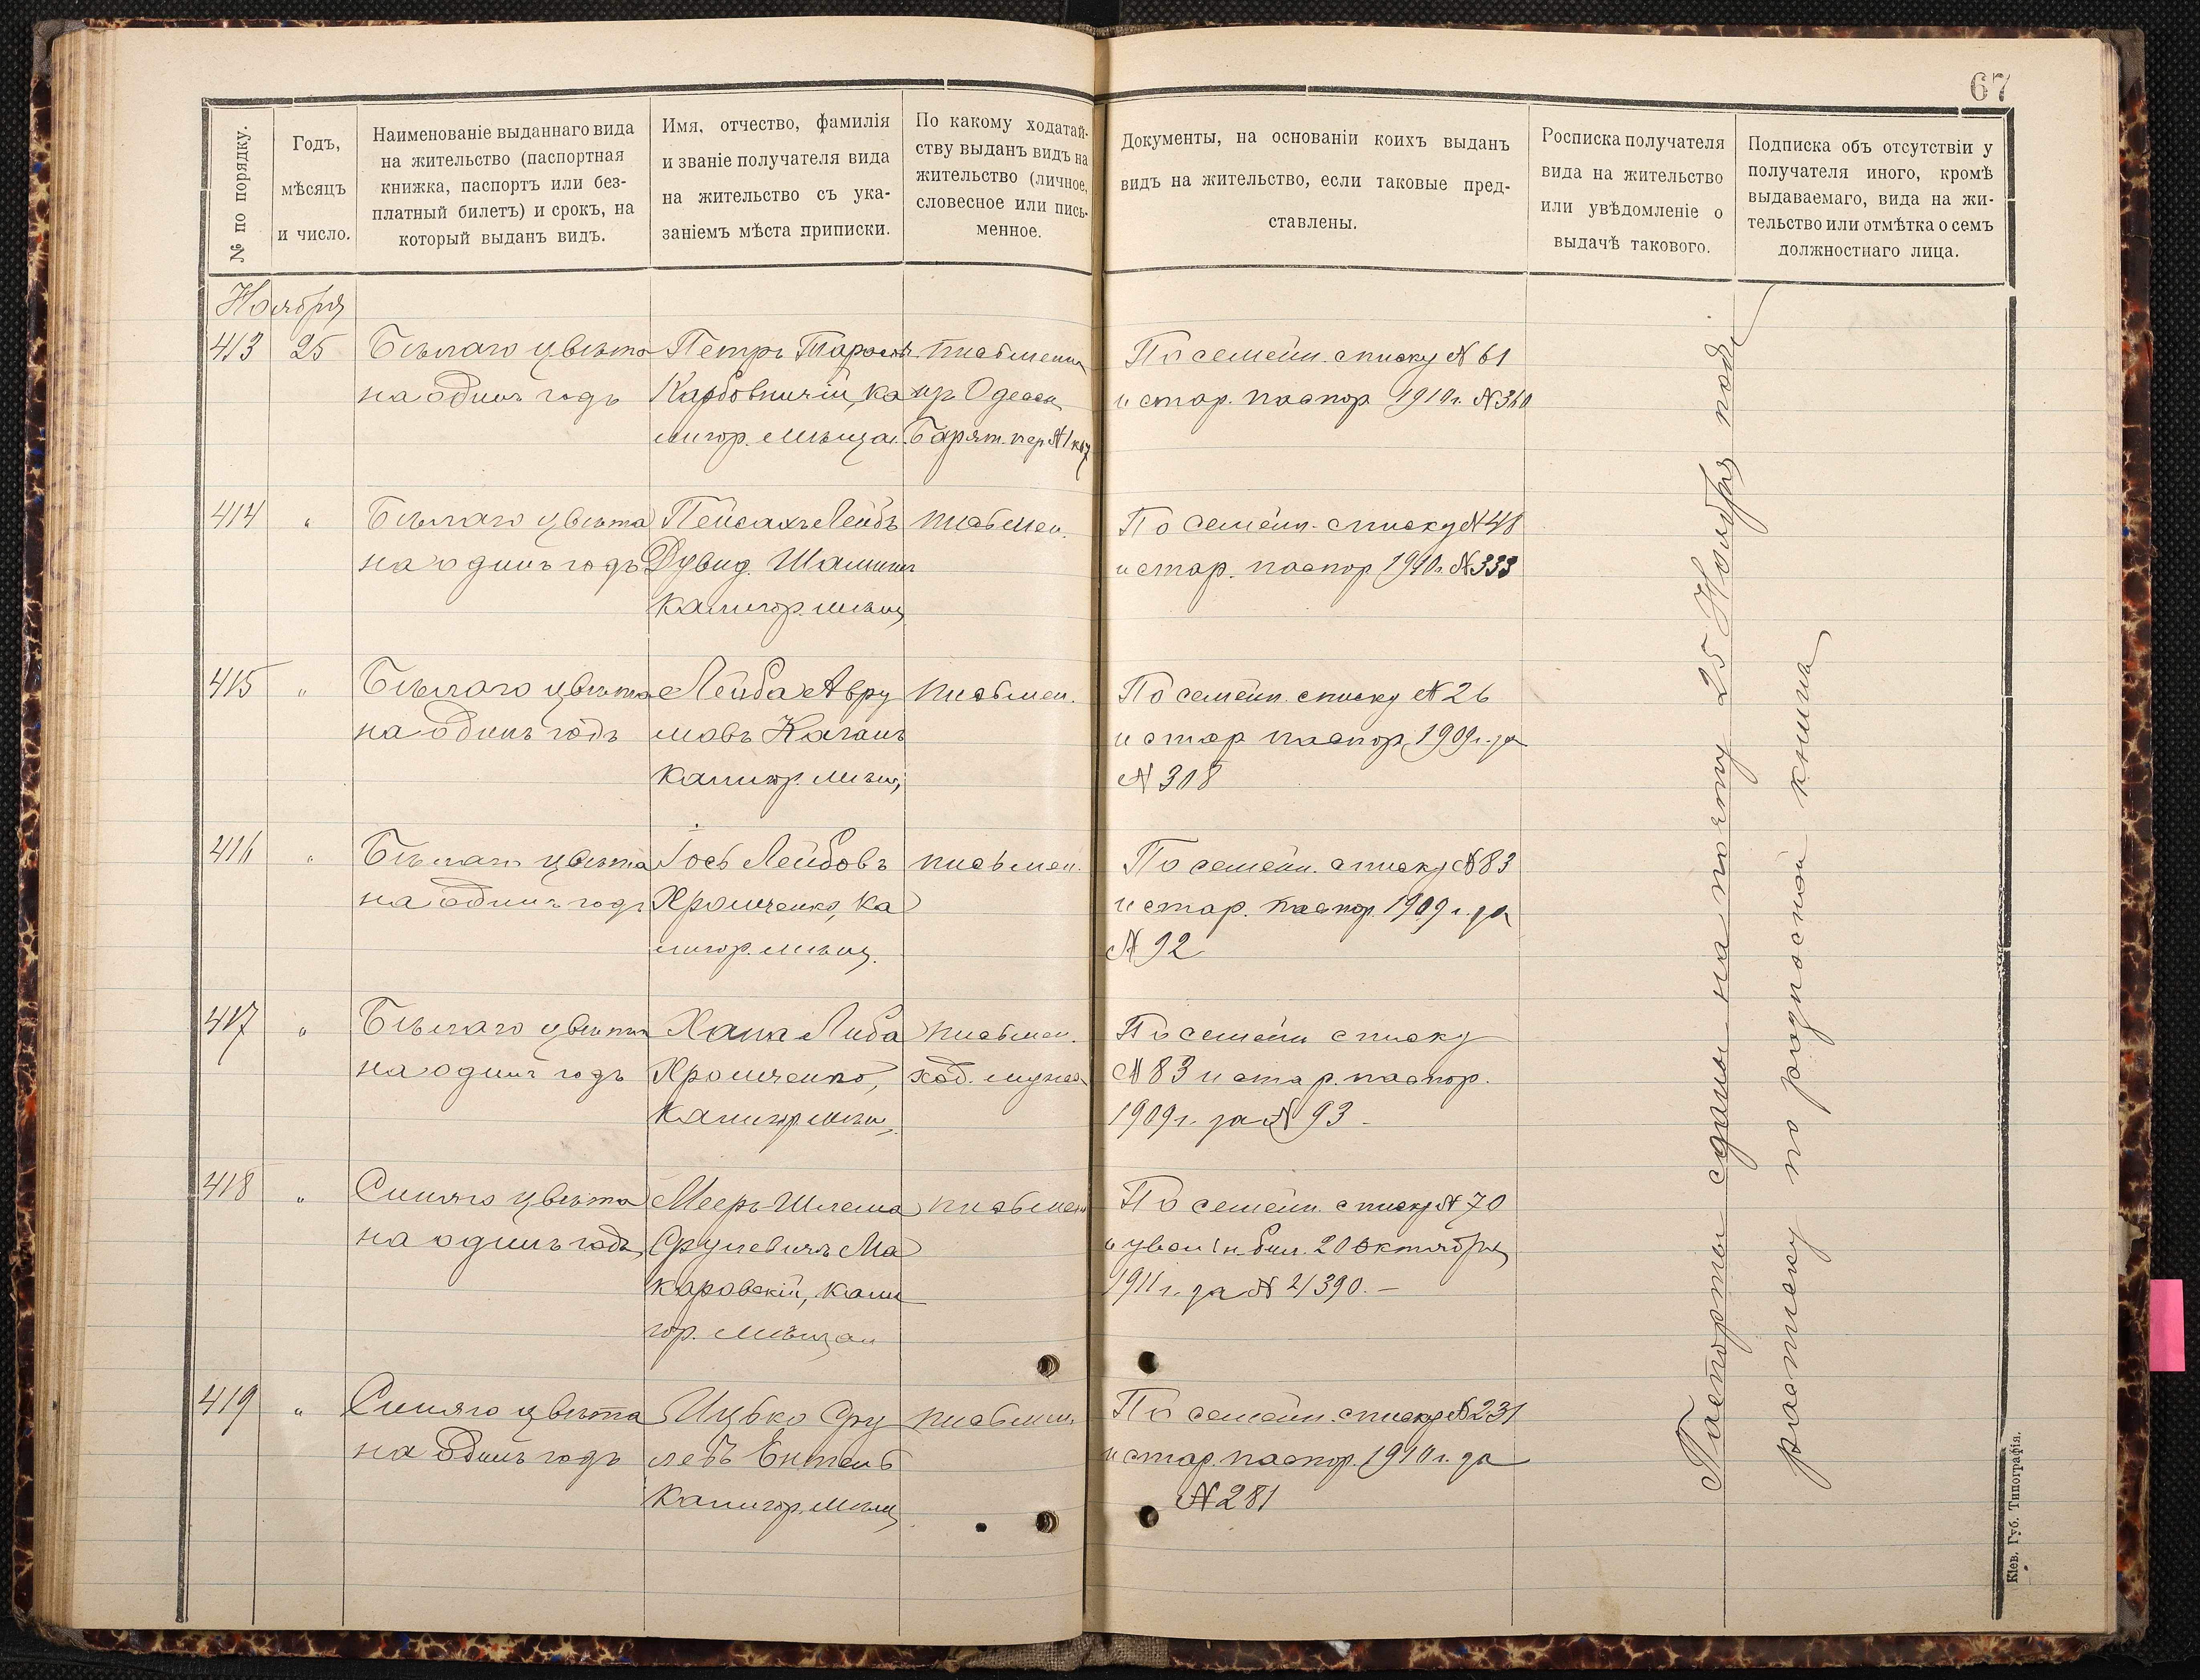 67
№ по порядку.
Годъ,
мѣсяцъ
и число.
Наименованіе выданнаго вида
на жительство (паспортная
книжка, паспортъ или без-
платный билетъ) и срокъ, на
который выданъ видъ.
Имя, отчество, фамилія
и званіе получателя вида
на жительство съ ука-
заніемъ мѣста приписки.
По какому ходатай-
ству выданъ видъ на
жительство (личное,
словесное или пись-
менное.
Документы, на основаніи коихъ выданъ
видъ на жительство, если таковые пред-
ставлены.
Росписка получателя
вида на жительство
или увѣдомленіе о
выдачѣ такового.
Подписка объ отсутствіи у
получателя иного, кромѣ
выдаваемаго, вида на жи-
тельство или отмѣтка о семъ
должностнаго лица.
Ноября
413 25
Бѣлаго цвѣта
на одинъ годъ
Петръ Тарасов
Карбовничій, ка
лигор. мѣщан.
письменн
гр Одесса
По семейн. списку № 61
и стар. паспор 1910г. № 360
414 "
Бѣлаго цвѣта
на одинъ годъ
Пейсахъ Лейбъ
Дувид.
Калигор. мѣщ
письмен.
По семейн. списку № 48
и стар. паспор 1910г. № 333
415 "
Бѣлаго цвѣта
на одинъ годъ
Лейба Авру
мовъ Каганъ
Калигор. мѣщ,
письмен.
По семейн. списку № 26
и стар паспор 1909г. за
№ 308
416 "
Бѣлаго цвѣта
на одинъ годъ
Іось Лейбовъ
Хромченко, Ка
лигор. мѣщ.
письмен.
По семейн. списку № 83
и стар. паспор. 1909г. за
№ 92
417 "
Бѣлаго цвѣта
на одинъ годъ
Хана Либа
Хромченко,
Калигор мѣщ.
письмен.
ход. мужа
По семейн списку
№ 83 и стар. паспор.
1909г. за № 93 -
418 "
Синяго цвѣта
на одинъ годъ
Мееръ Шлема
Срулевичъ Ма
каровскій, Кали
гор. мѣщан
письмен
По семейн. списку № 70
и увол. бил. 20 октября
1911г. за № 21390. -
419 "
Синяго цвѣта
на одинъ годъ
Ицько Сру
левъ Ентель
Калигор. мѣщ
письмен
По семейн. списку № 231
и стар. паспор. 1910г. за
№ 281
Паспорты сданы на почту 25 Ноября подъ
расписку по разносной книгѣ
Кіев. Губ. Типографія.